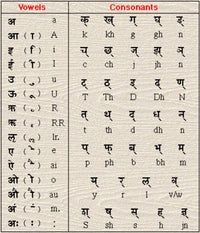 Vowels Consonants
अ a
आ ( ा ) A
इ ( ि ) i
ई ( ी ) I
उ ( ु ) u
ऊ ( ू ) U
ऋ ( ृ ) R
ॠ ( ॄ ) RR
ऌ ( ॢ ) lr.
ए ( े ) e
ऐ ( ै ) ai
ओ ( ो ) o
औ ( ौ ) au
अं ( ं ) m.
अः ( ः ) :
क् ख् ग् घ् ङ्
k kh g gh n
च् छ् ज् झ् ञ्
c ch j jh n
ट् ठ् ड् ढ् ण्
T Th D Dh N
त् थ् द् ध् न्
t th d dh n
प् फ् ब् भ् म्
p ph b bh m
य् र् ल् व्
y r l v/w
ष् स् ह्
S sh s h jn